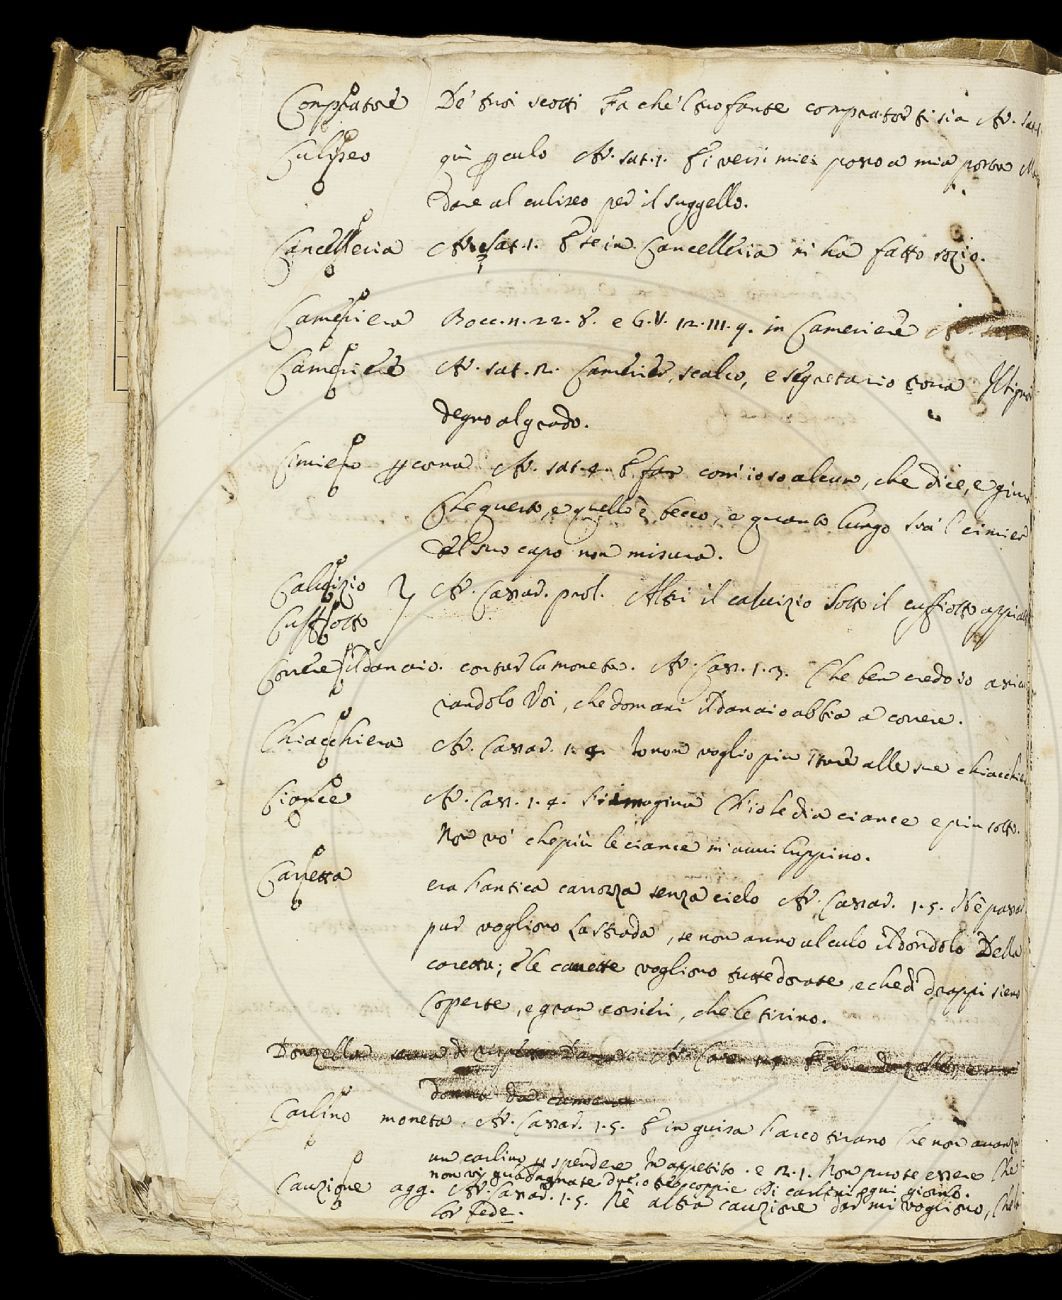 Compratore De' tuoi scotti Fa che 'l tuo fante comprator ti sia Ar. Sat.
Culiseo qui culo Ar. sat. 1. versi miei posso a mia posta
dare al culiseo per il suggello.
Cancelleria Ar. Sat. 1. se in Cancelleria m' ha fatto sozio.
Cameriera Bocc. n. 22. 8. e G. V. 12. 111. 9. in Cameriere
Cameriere Ar. sat. 2. Camerier, scalco, e segretario
degno al grado.
Cimiero corna Ar. sat. 4. com' io so alcun, che dice, e
Che questo, e quello è becco, e quanto lungo Sia 'l cimier
del suo capo non misura.
Calvizio Ar. Cassar. prol. Altri il calvizio Sotto il cuffiotto
Cuffiotto
Correre il danaio. contar la moneta. Ar. Cass. 1. 3. Che ben credo io
randolo Voi, che domani il danaio abbia a correre.
Chiacchiera Ar. Cassar. 1. Io non voglio più stare alle sue
Ciance Ar. Cass. 1. 4. S' immagina Ch' io le dia ciance e più sotto.
Non vo' che più le ciance m' avviluppino.
Carretta era l' antica carrozza senza cielo Ar. Cassar. 1. 5. Nè
pur vogliono La strada, se non anno al culo il dondolo Della
caretta; E le carette vogliono tutte dorate, e che di drappi sieno
Coperte, e gran corsieri, che le tirino.
Donzella
donna da camera
Carlino moneta. Ar. Cassar. 1. 5. in guisa l' arco tirano Che non avanza
un carlino spendere In appetito. e 2. 1. Non puote essere Che
non vi guadagnate dieci coppie Di carlini ogni giorno.
Cauzione agg. Ar. Cassar. 1. 5. Nè altra cauzione dar mi vogliono,
lor fede.